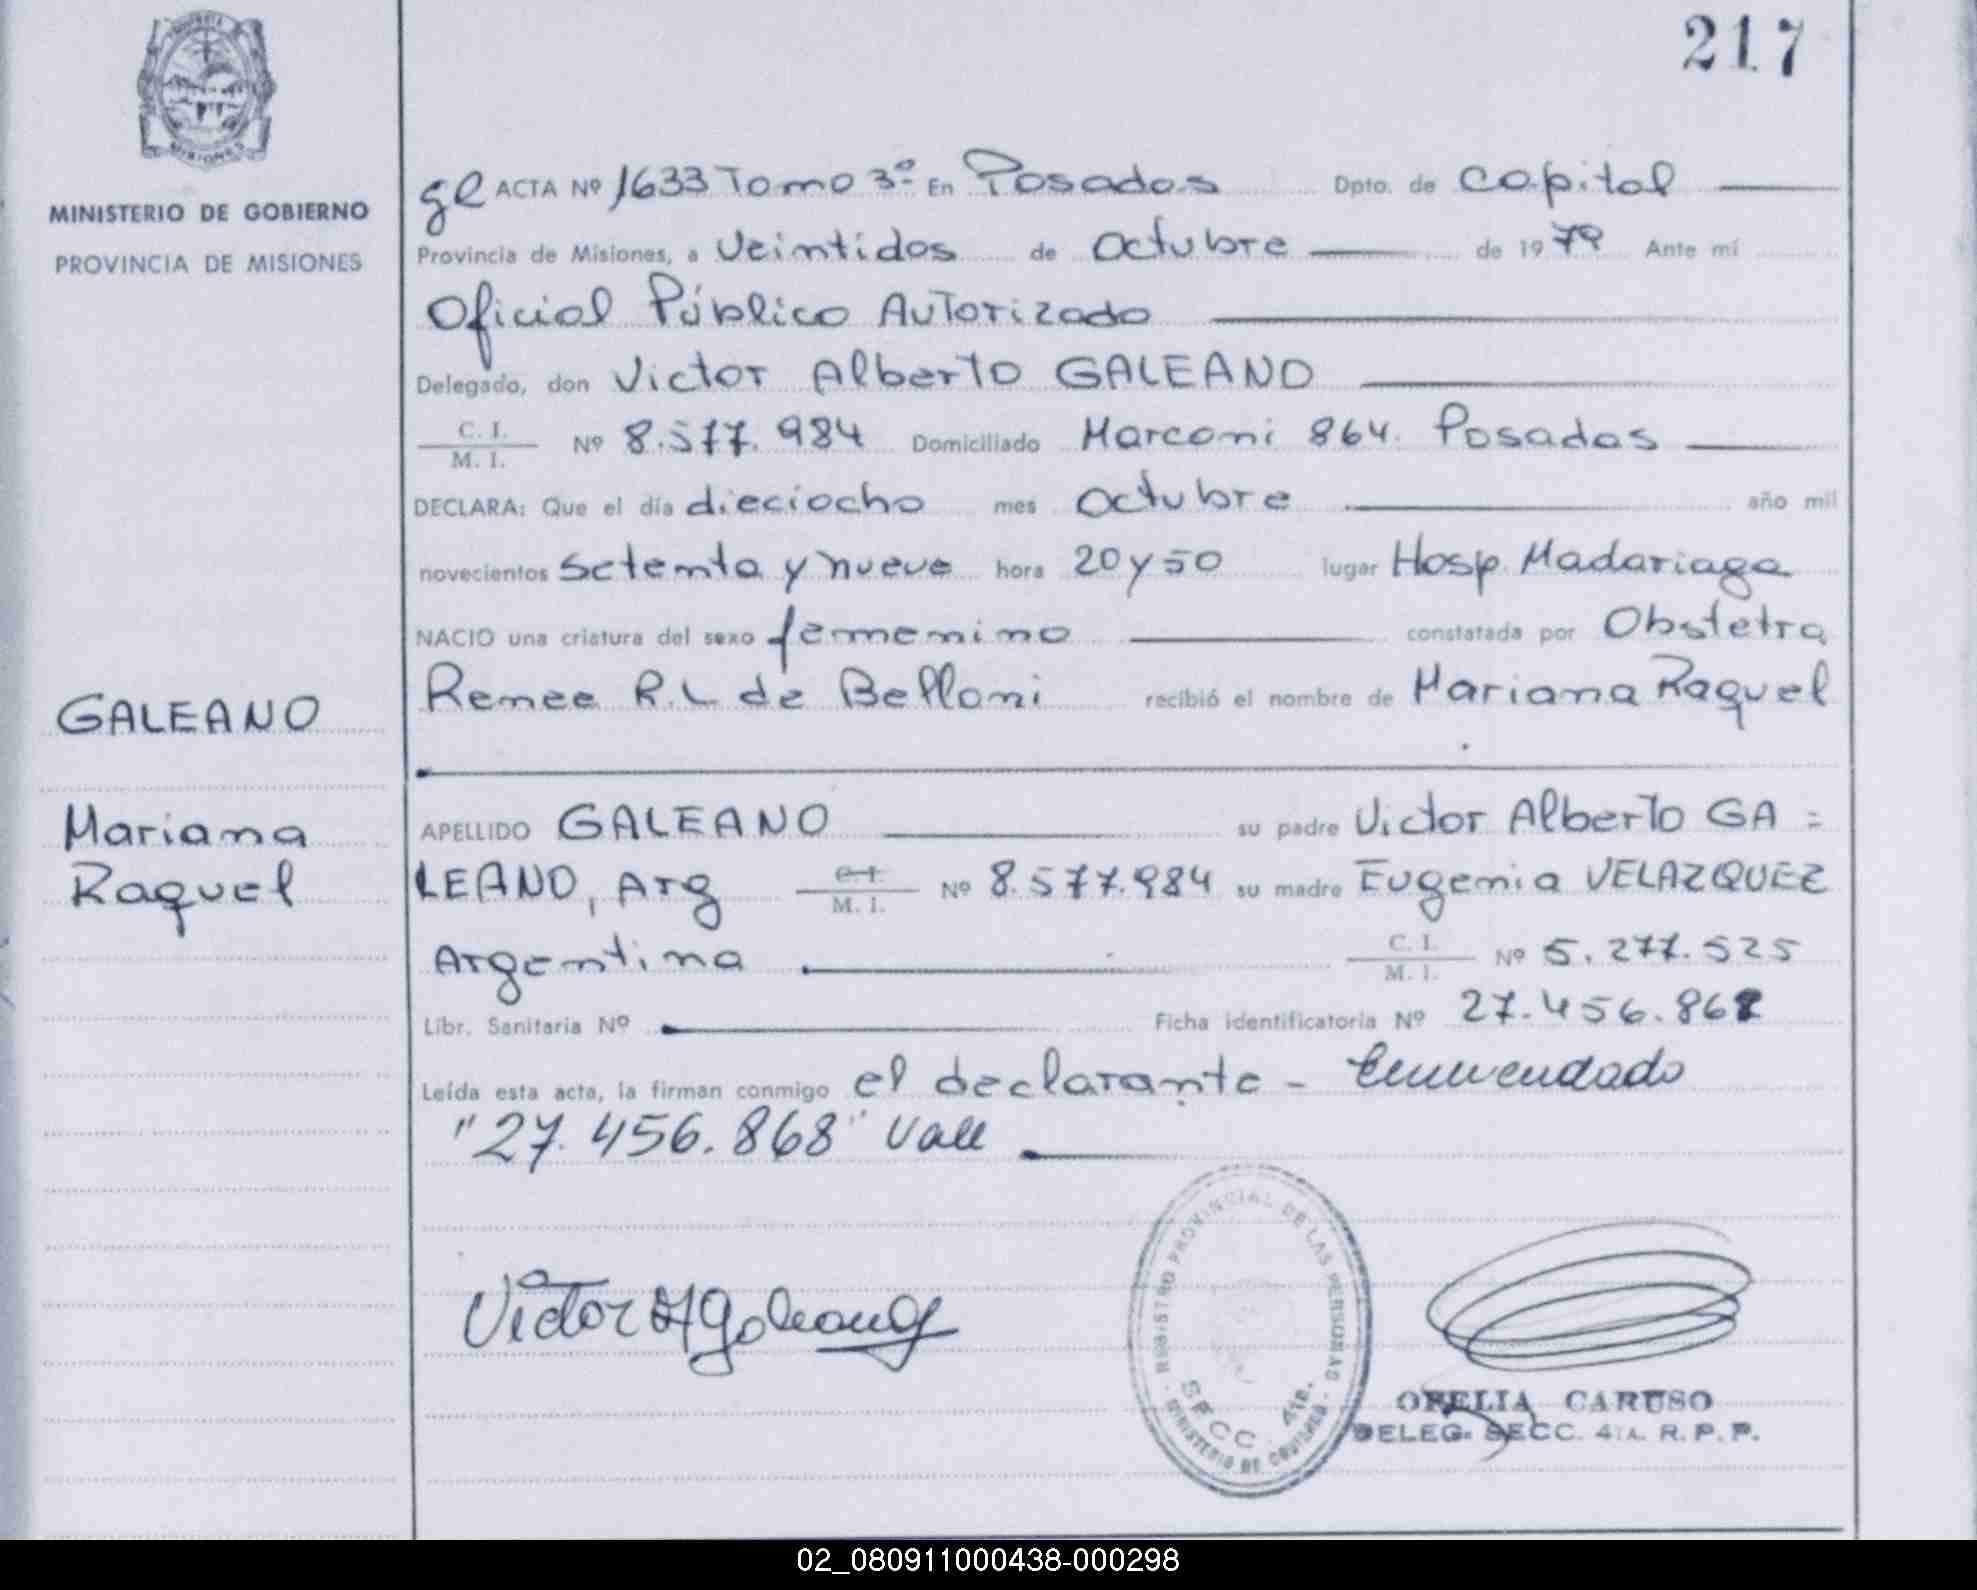 217
PROVINCIA
MISIONES
MINISTERIO DE GOBIERNO
PROVINCIA DE MISIONES
ge ACTA Nº 1633 Tomo 3º En Posadas Dpto. de Capital
Provincia de Misiones, a Veintidos de Octubre de 1979 Ante mí
Oficial Público Autorizado
Delegado, don Victor Alberto GALEANO
C. I.
M. I. Nº 8.577.984 Domiciliado Marconi 864. Posadas
DECLARA: Que el día dieciocho mes Octubre año mil
novecientos setenta y nueve hora 20 y 50 lugar Hosp. Madariaga
NACIO una criatura del sexo femenino constatada por Obstetra
Renee R. L. de Belloni recibió el nombre de Mariana Raquel
GALEANO
Mariana
Raquel
APELLIDO GALEANO su padre Victor Alberto GA =
LEANO, Arg C. I.
M. I. Nº 8.577.984 su madre Eugenia VELAZQUEZ
Argentina C. I.
M. I. Nº 5.277.525
Libr. Sanitaria Nº Ficha identificatoria Nº 27.456.868
Leída esta acta, la firman conmigo el declarante - Enmendado
"27.456.868" Vale
Victor A Galeano
REGISTRO PROVINCIAL DE LAS PERSONAS
SECC. 4ta.
MINISTERIO DE GOBIERNO
OFELIA CARUSO
DELEG. SECC. 4TA. R. P. P.
02_080911000438-000298